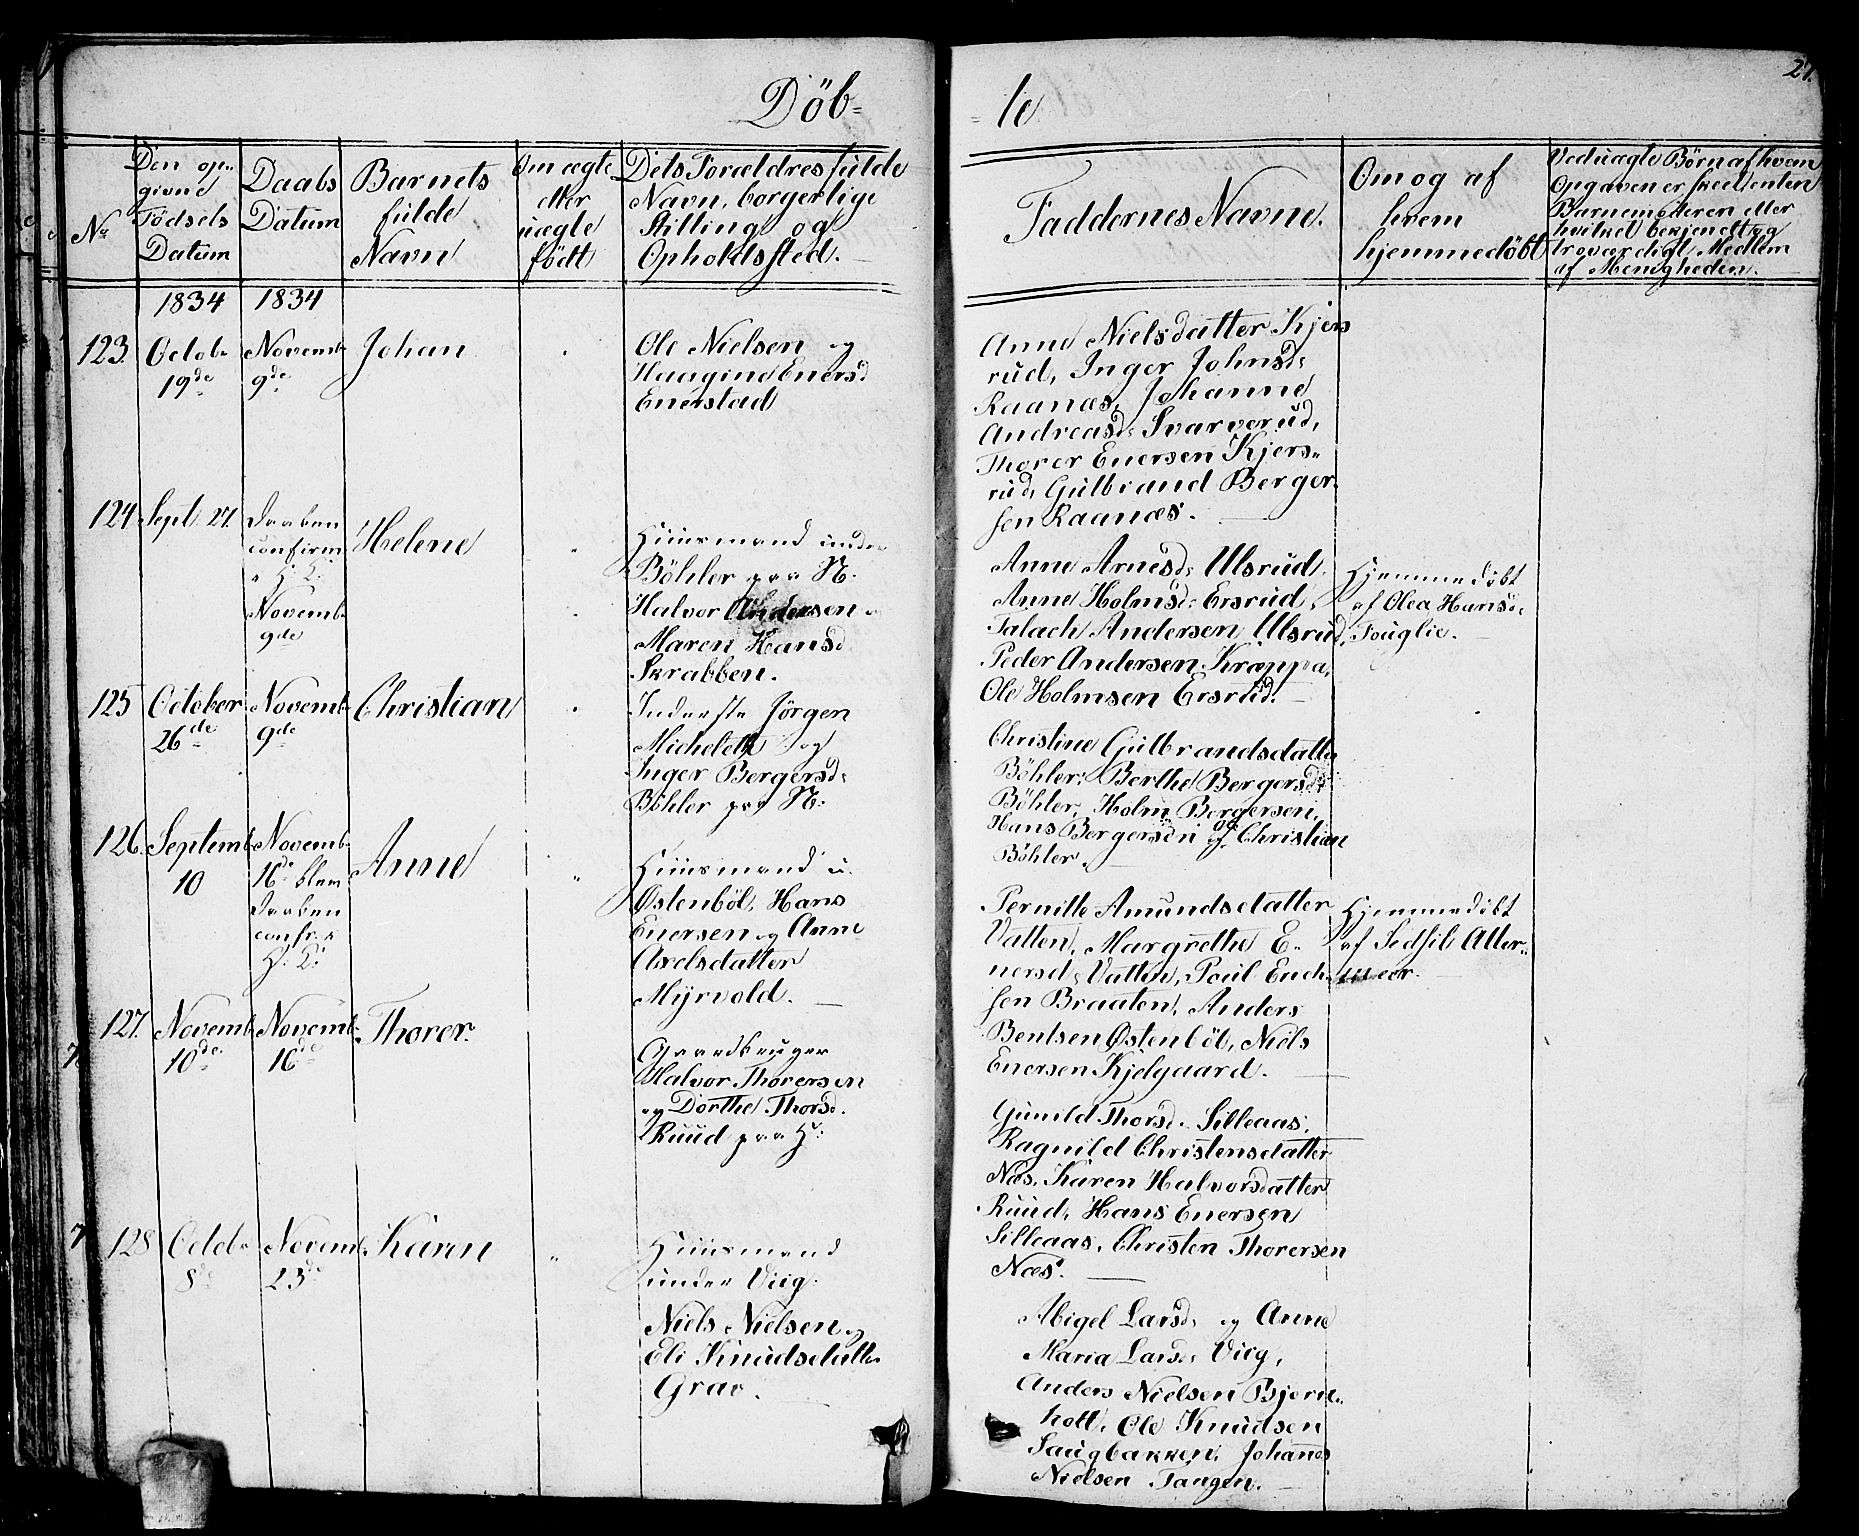 Döb=
= te
27.
No
Den op=
givne
Födsels
Datum
Daabs
Datum
Barnets
fulde
Navn
Om ægte
eller
uægte
født
Dets Forældres fulde
Navn, borgerlige
Stilling og
Opholdssted.
Faddernes Navne.
Om og af
hvem
hjemmedöbt
Ved uægte Börn af hvem
Opgaven er skeet enten
Barnemoderen eller
hvilket bekjendt og
troværdigt Medlem
af Menigheden.
1834
1834
123.
Octob.
19de
Novemb.
9de
Johan
Ole Nielsen og
Haagine Enersd
Enerstad
Anne Nielsdatter Kjers
rud, Inger Johnsd:
Raanæs, Johanne
Andreasd: Svarverud,
Thorer Enersen Kjers=
rud, Gulbrand Berger
sen Raanæs.
124.
Sept. 27.
Daaben
confirm.
i H. K.
Novemb.
9de
Helene
Huusmand under
Böhler paa N:
Halvor Andersen
Maren Hansd
Skrabben.
Anne Arnesd: Ulsrud
Anne Holmsd: Ersrud,
Falach Andersen Ulsrud,
Peder Andersen Kræppa,
Ole Holmsen Ersrud.
Hjemmedöbt
af Olea Hansd:
Fuuglie.
125
October
26de
Novemb.
9de
Christian
Inderste Jörgen
Michelet og
Inger Bergersd:
Böhler paa N:
Christine Gulbrandsdatter
Böhler, Berthe Bergersd:
Böhler, Holm Bergersen,
Hans Bergersen og Christian
Böhler.
126.
Septemb.
10
Novemb.
16de blev
Daaben
confr. i
H. K:
Anne
Huusmand u.
Østenböl, Hans
Enersen og Anne
Axelsdatter
Myrvold.
Pernille Amundsdatter
Vatten, Margrethe E=
nersd: Vatten, Poul Endr.
sen Braaten, Anders
Bentsen Østenböl, Niels
Enersen Kjelgaard.
Hjemmedöbt
af Sedsil Atter=
127.
Novemb.
10de
Novemb.
16de
Thorer.
Gaardbruger
Halvor Thorersen
og Dorthe Thorsd.
Ruud paa H:
Gunild Thorsd. Silleaas,
Ragnild Christensdatter
Næs, Karen Halvorsdatter
Ruud, Hans Enersen
Silleaas, Christen Thorersen
Næs.
128
Octob.
8de
Novemb.
23de
Karen
Huusmand
under Viig:
Niels Nielsen og
Eli Knudsdatter
Grav.
Abigel Larsd: og Anne
Maria Larsd: Viig,
Anders Nielsen Bjern=
holt, Ole Knudsen
Saugbakken, Johannes
Nielsen Tangen.